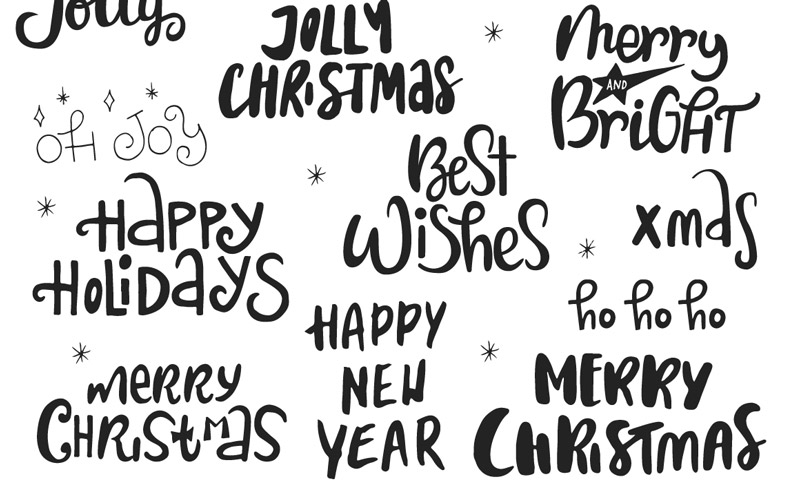 Jolly
JOLLY
CHRiSTMaS
merry
AND
BriGHT
OH JOY
BeSt
WiSheS
HaPPy
HoLiDayS
xmaS
ho ho ho
HAPPY
NEW
YEAR
meRRY
CHRiStMaS
MERRY
CHRiSTMAS